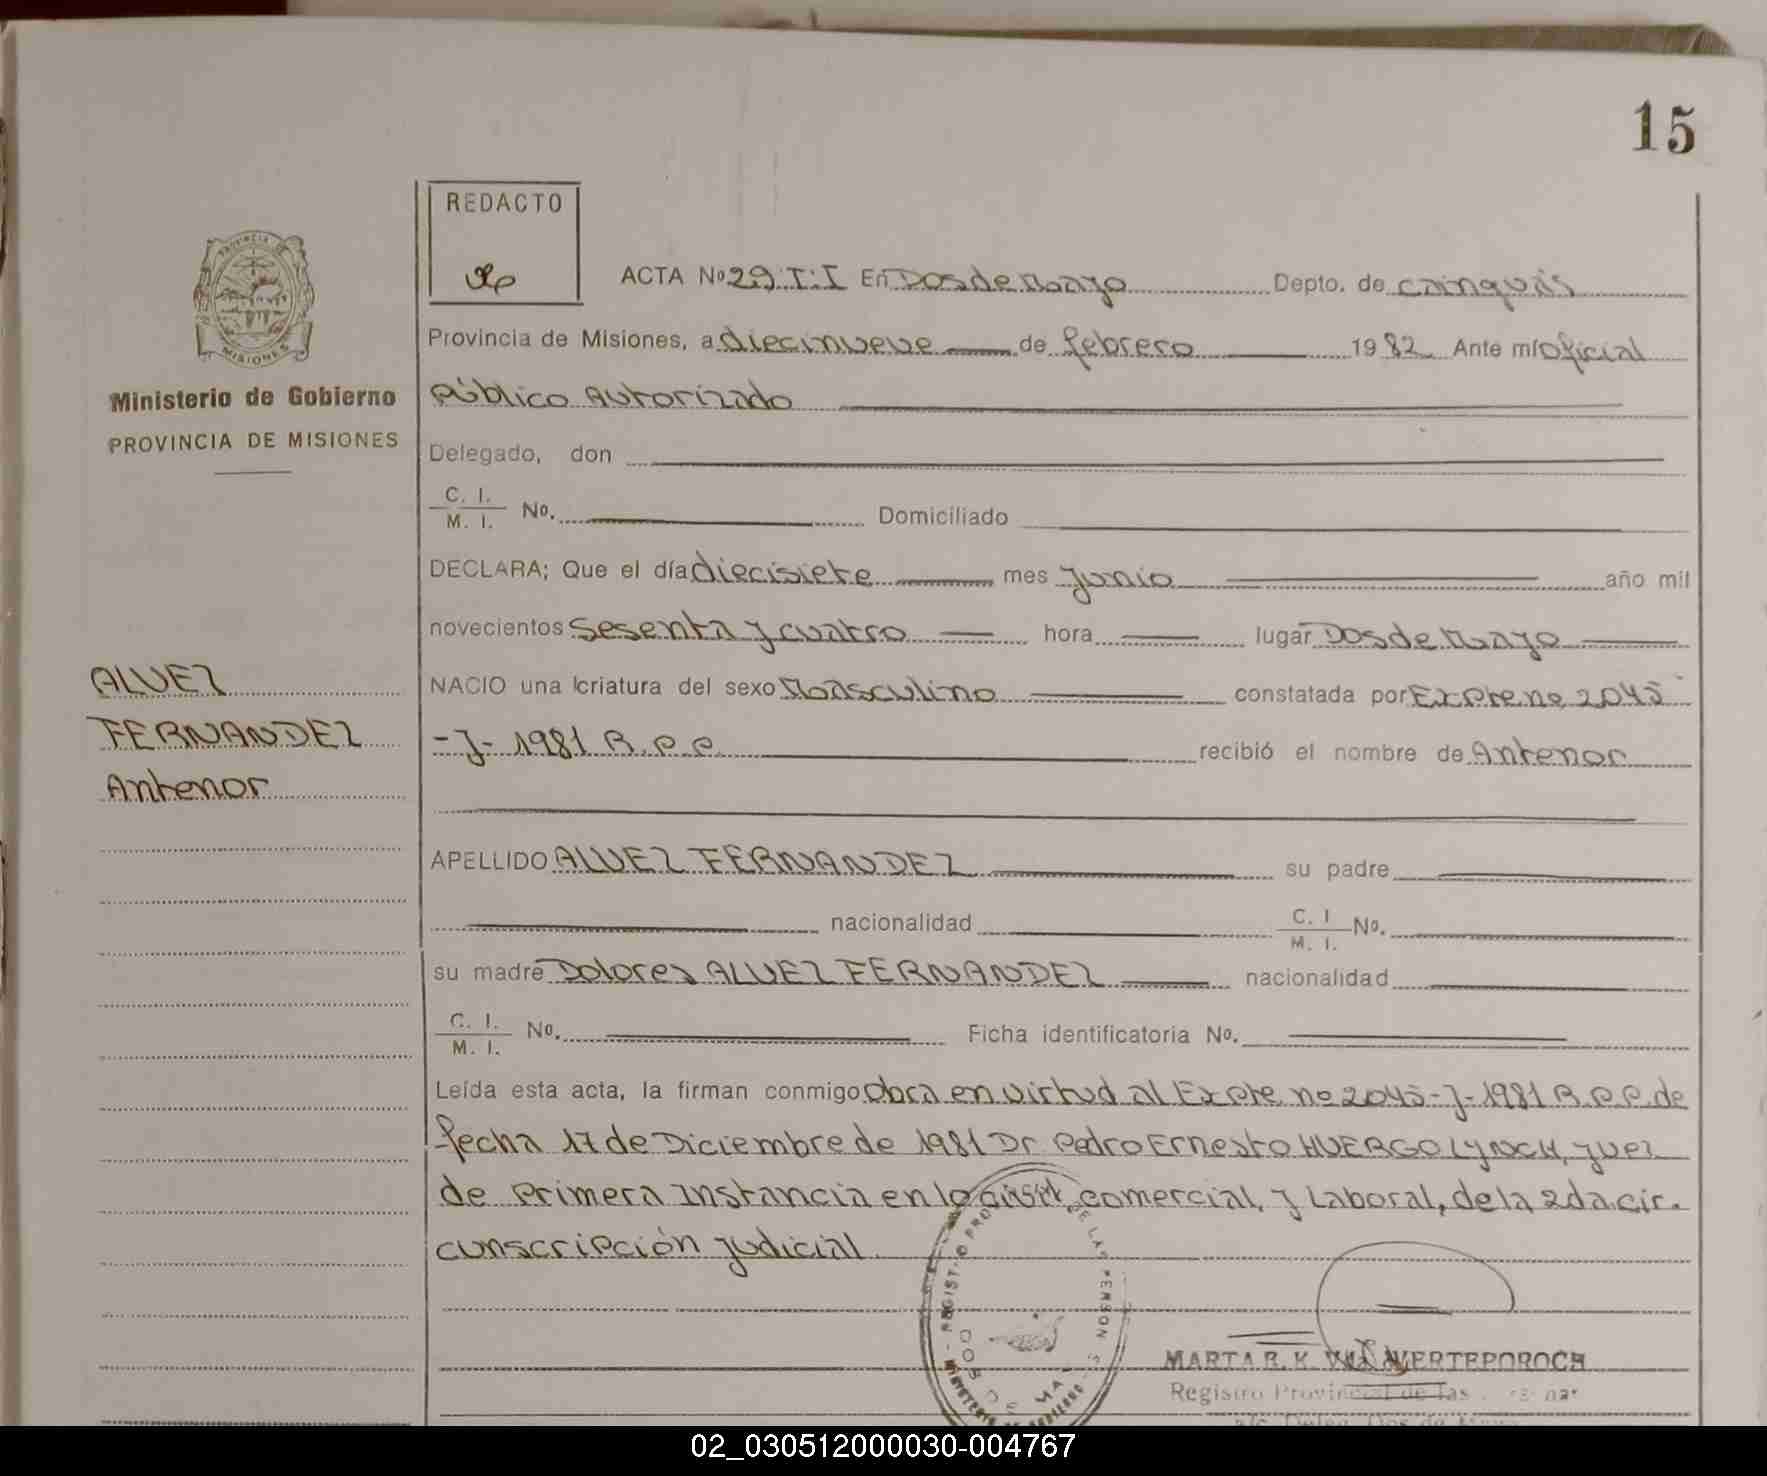 15
REDACTO
ACTA Nº 29 T: I En Dos de Mayo Depto. de Cainguás
Provincia de Misiones, a diecinueve de febrero 1982 Ante mí Oficial
Público Autorizado
Ministerio de Gobierno
PROVINCIA DE MISIONES
PROVINCIA DE
MISIONES
Delegado, don
C. I.
M. I. No. Domiciliado
DECLARA; Que el día diecisiete mes Junio año mil
novecientos sesenta y cuatro hora lugar Dos de Mayo
ALVEZ
FERNANDEZ
Antenor
NACIO una criatura del sexo Masculino constatada por Expte. nº 2045
-J- 1981 R.P.P. recibió el nombre de Antenor
APELLIDO ALVEZ FERNANDEZ su padre
nacionalidad C. I
M. I. No.
su madre Dolores ALVEZ FERNANDEZ nacionalidad
C. I.
M. I. No. Ficha identificatoria No.
Leída esta acta, la firman conmigo Obra en virtud al Expte nº 2045-J-1981 R.P.P. de
fecha 17 de Diciembre de 1981 Dr Pedro Ernesto HUERGO LYNCH, Juez
de Primera Instancia en lo Civil, comercial, y Laboral, de la 2da cir.
cunscripción judicial
MARTA R. K. WERTEPOROCH
Registro Provincial de las
02_030512000030-004767